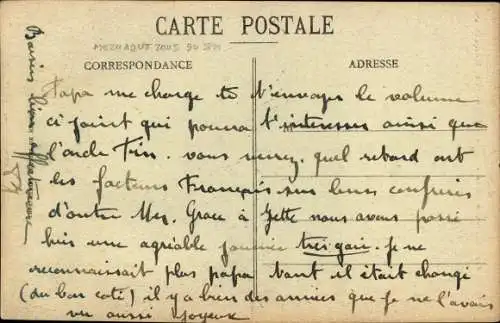 CARTE POSTALE
CORRESPONDANCE
ADRESSE
Papa me charge de t'envoyer le volume
ci joint qui pourra t'intéresser ainsi que
l'oncle Fin. vous verrez quel retard ont
les facteurs Français sur leurs confrères
d'outre Mer. Grace à Jette nous avons passé
hier une agréable journée très gaie. Je ne
reconnaissait plus papa tant il était changé
(du bon coté) il y a bien des années que je ne l'avais
vu aussi joyeux
Baisers bien affectueux